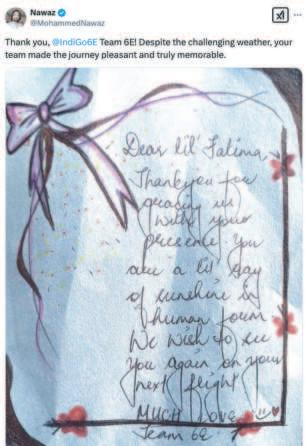 Nawaz
@MohammedNawaz
Thank you, @IndiGo6E Team 6E! Despite the challenging weather, your
team made the journey pleasant and truly memorable.
Dear lil' Fatima,
Thankyou for
gracing us
with your
presence. You
are a lil' Ray
of sunshine in
human form
We wish to see
You again on your
next flight
MUCH LOVE
Team 6E